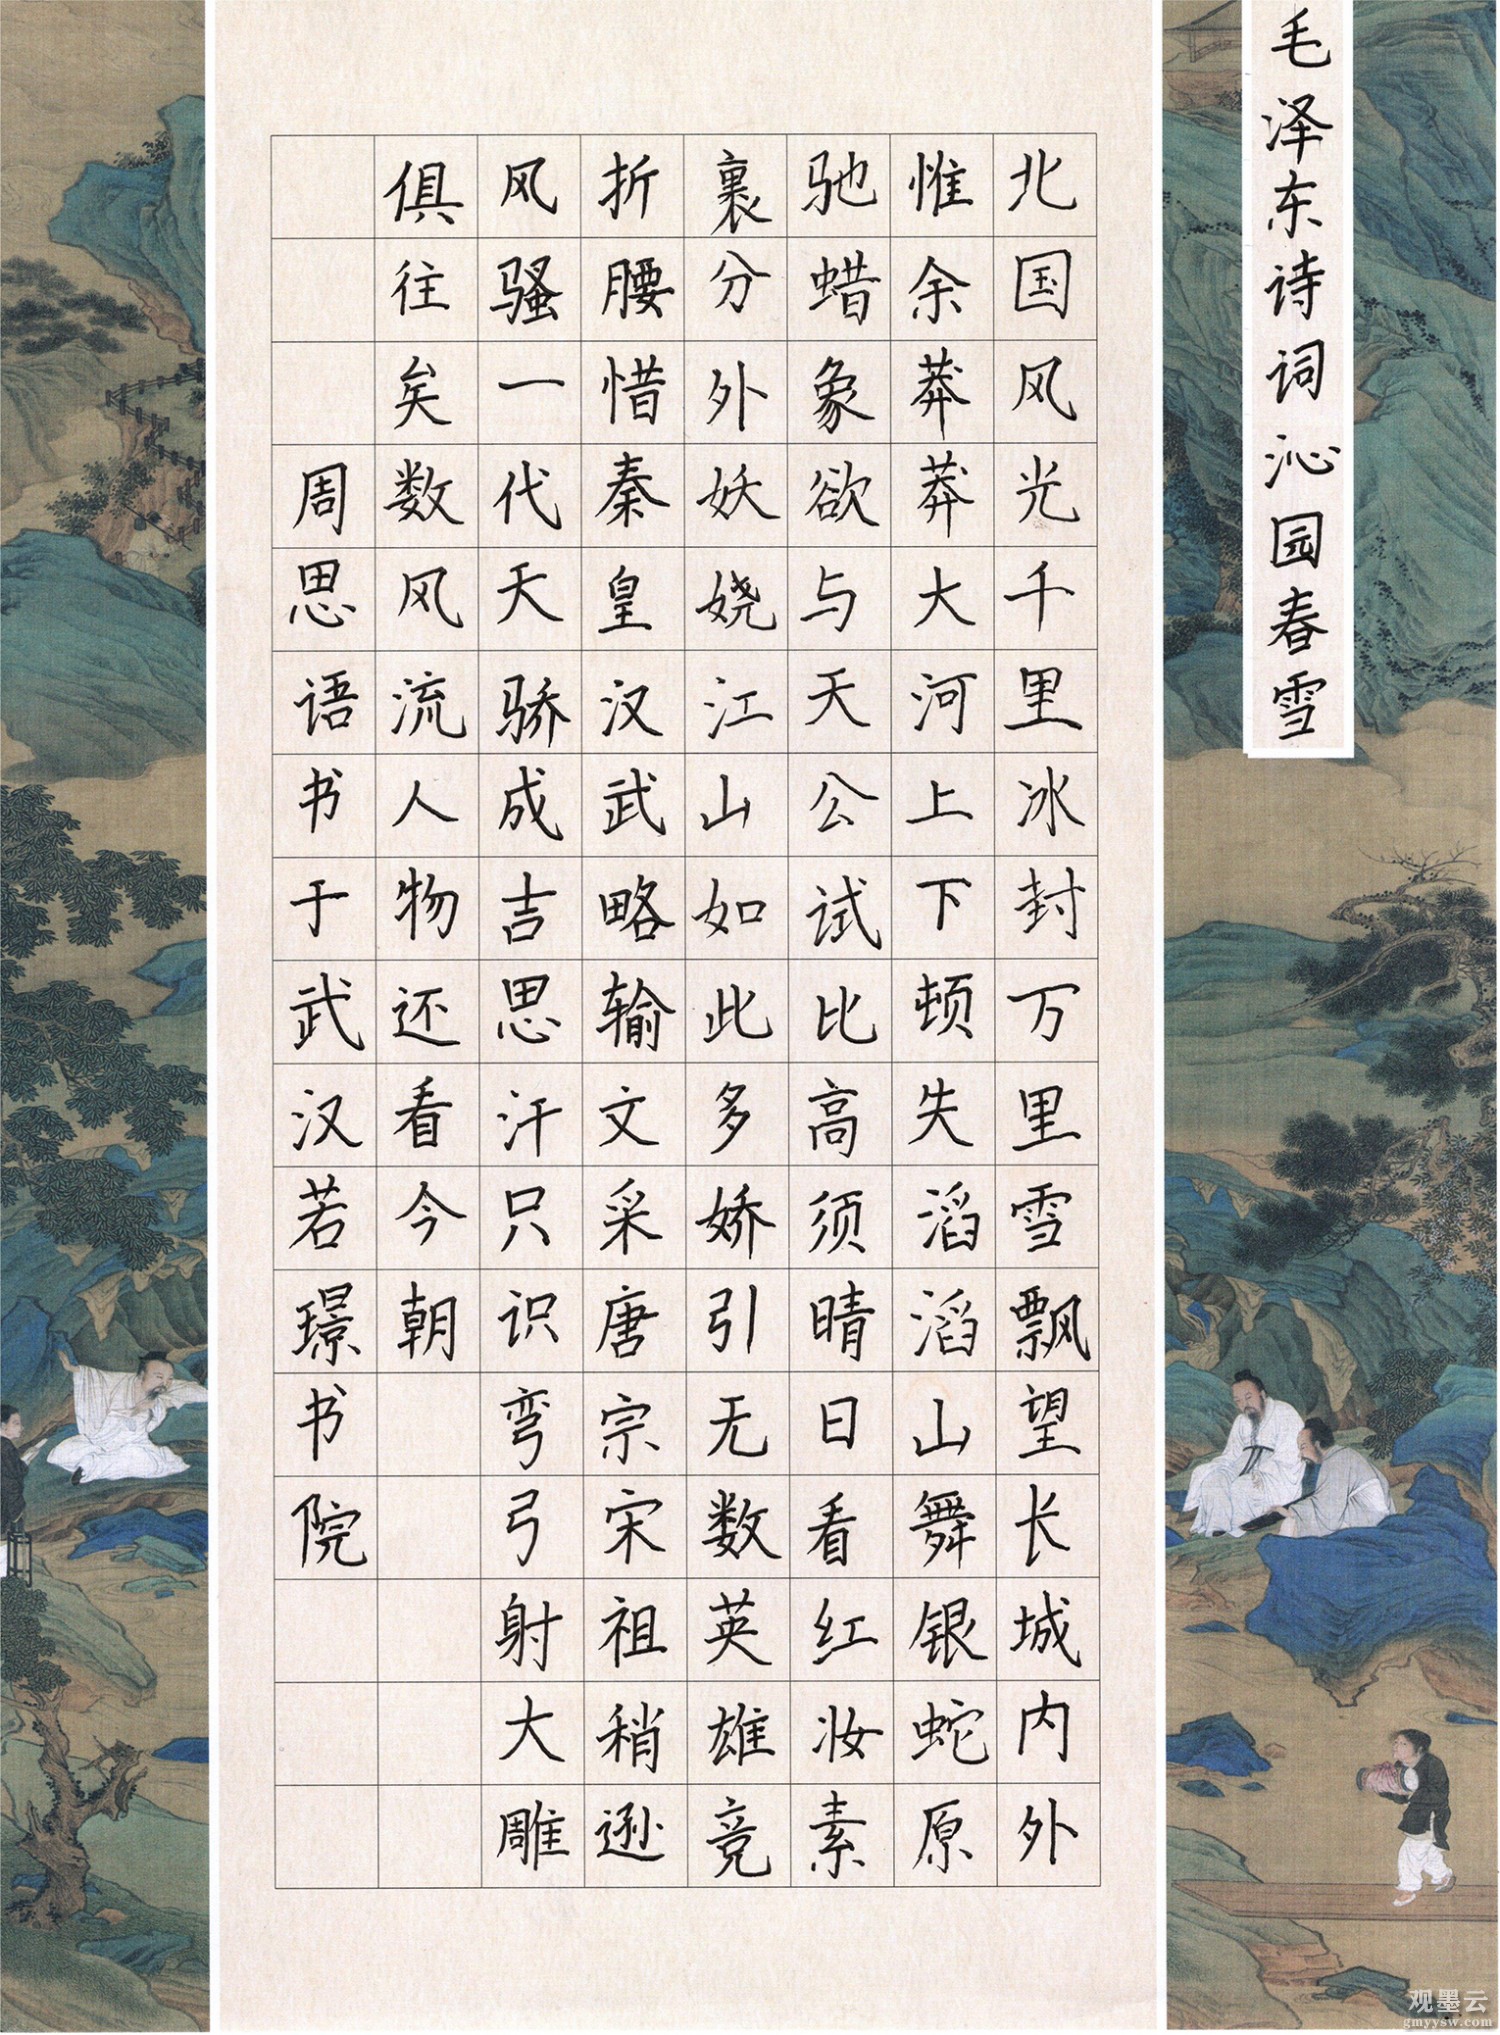 毛泽东诗词沁园春雪
北国风光千里冰封万里雪飘望长城内外
惟余莽莽大河上下顿失滔滔山舞银蛇原
驰蜡象欲与天公试比高须晴日看红妆素
裹分外妖娆江山如此多娇引无数英雄竞
折腰惜秦皇汉武略输文采唐宗宋祖稍逊
风骚一代天骄成吉思汗只识弯弓射大雕
俱往矣数风流人物还看今朝
周思语书于武汉若璟书院
观墨云
gmyysw.com